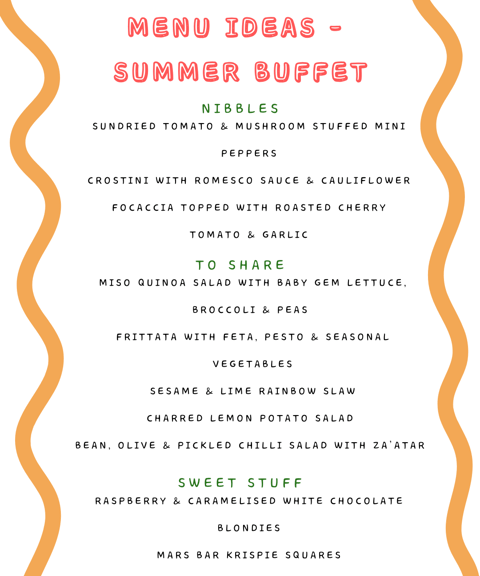 MENU IDEAS -
SUMMER BUFFET
NIBBLES
SUNDRIED TOMATO & MUSHROOM STUFFED MINI
PEPPERS
CROSTINI WITH ROMESCO SAUCE & CAULIFLOWER
FOCACCIA TOPPED WITH ROASTED CHERRY
TOMATO & GARLIC
TO SHARE
MISO QUINOA SALAD WITH BABY GEM LETTUCE,
BROCCOLI & PEAS
FRITTATA WITH FETA, PESTO & SEASONAL
VEGETABLES
SESAME & LIME RAINBOW SLAW
CHARRED LEMON POTATO SALAD
BEAN, OLIVE & PICKLED CHILLI SALAD WITH ZA'ATAR
SWEET STUFF
RASPBERRY & CARAMELISED WHITE CHOCOLATE
BLONDIES
MARS BAR KRISPIE SQUARES